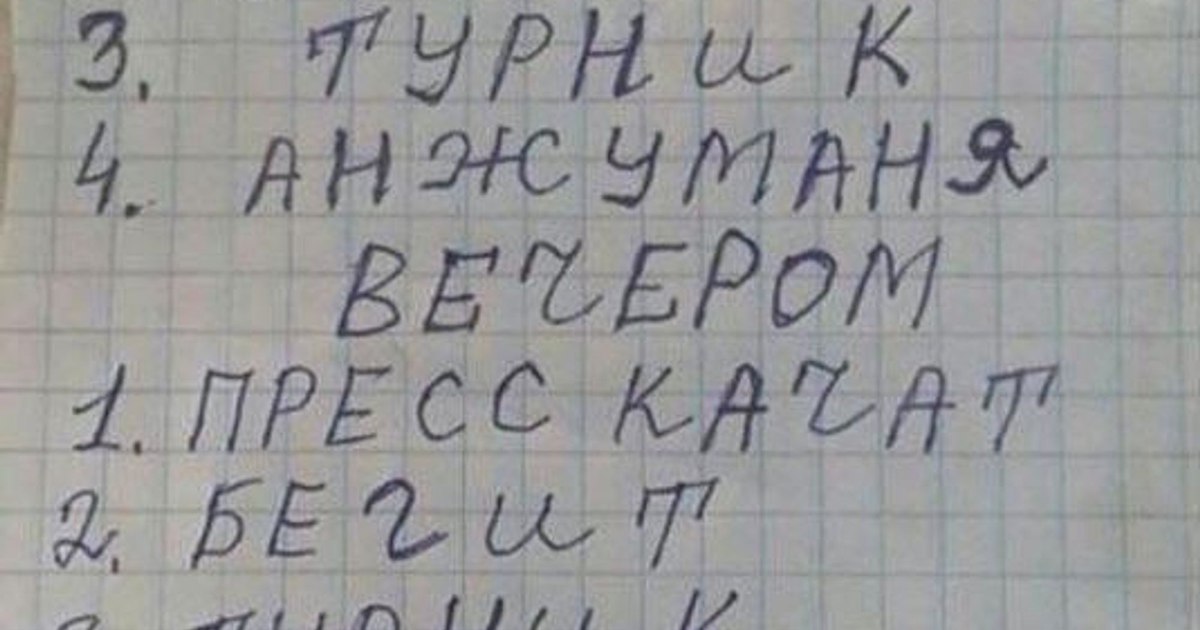 3. ТУРНИК
4. АНЖУМАНЯ
ВЕЧЕРОМ
1. ПРЕСС КАЧАТ
2. БЕГИТ
3. ТУРНИК